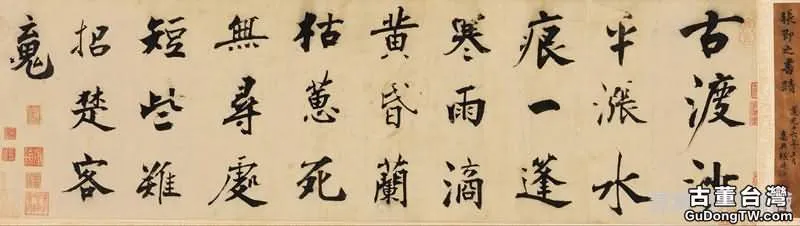 張即之書蹟
古渡沙
平漲水
痕一蓬
寒雨滴
黄昏蘭
枯蕙死
無尋處
短些難
招楚客
魂
古董台灣
GuDongTW.com